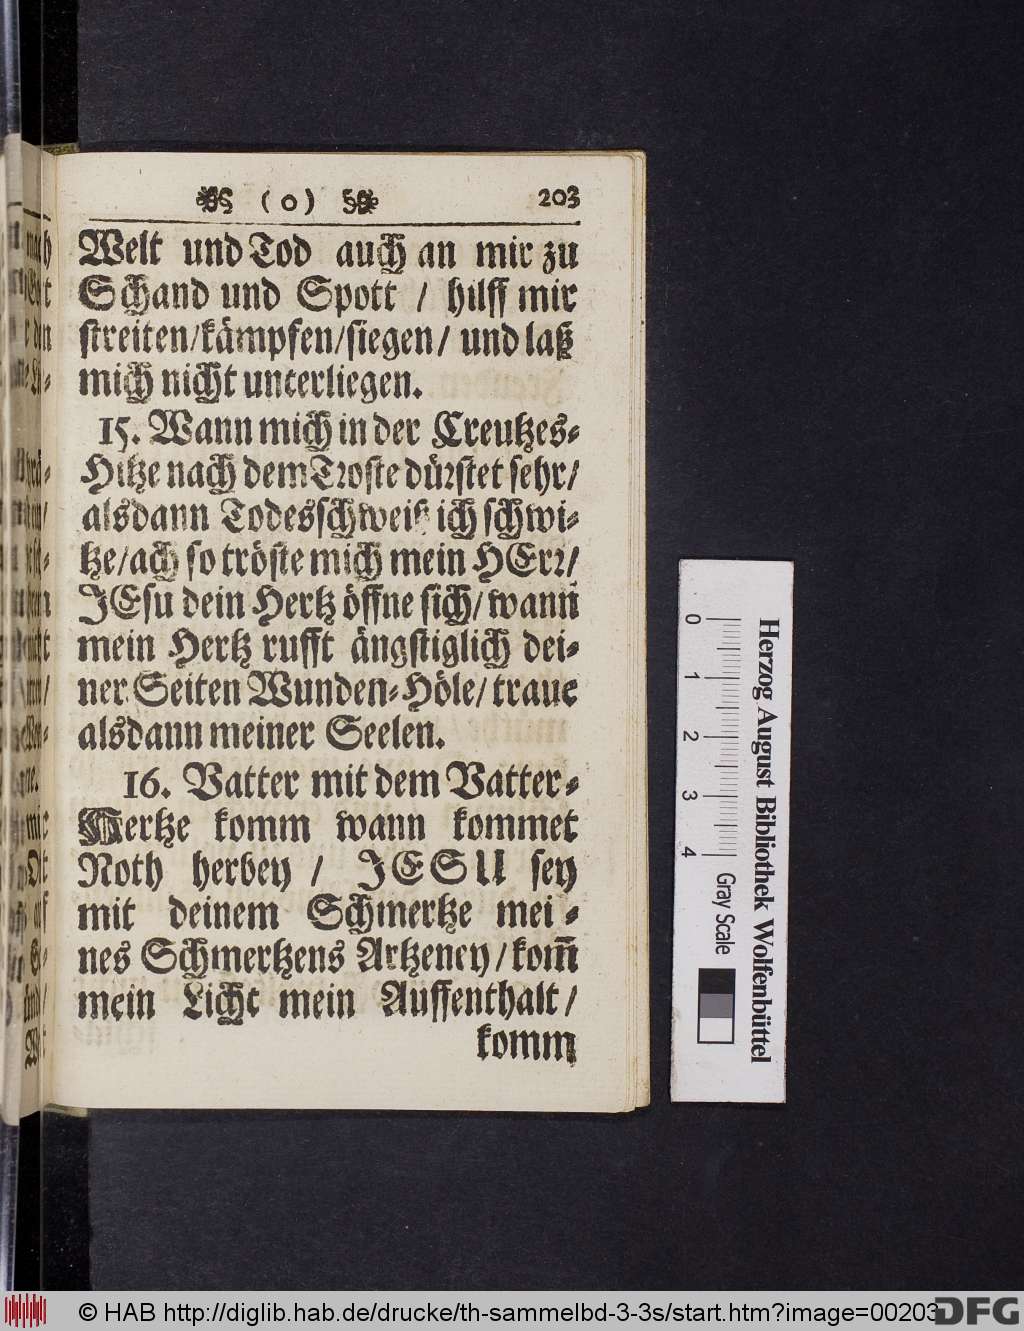 ( 0 ) 203
Welt und Tod auch an mir zu
Schand und Spott / hilff mir
streiten/kämpfen/siegen/ und laß
mich nicht unterliegen.
15. Wann mich in der Creutzes-
Hitze nach dem Troste dürstet sehr/
alsdann Todesschweiß ich schwi-
tze/ach so tröste mich mein HErr/
JEsu dein Hertz öffne sich/ wann
mein Hertz rufft ängstiglich dei-
ner Seiten Wunden-Höle/ traue
alsdann meiner Seelen.
16. Vatter mit dem Vatter-
Hertze komm wann kommet
Noth herbey / JESU sey
mit deinem Schmertze mei-
nes Schmertzens Artzeney/kom̄
mein Licht mein Auffenthalt/
komm
0 1 2 3 4 Gray Scale
Herzog August Bibliothek Wolfenbüttel
© HAB http://diglib.hab.de/drucke/th-sammelbd-3-3s/start.htm?image=00203
DFG